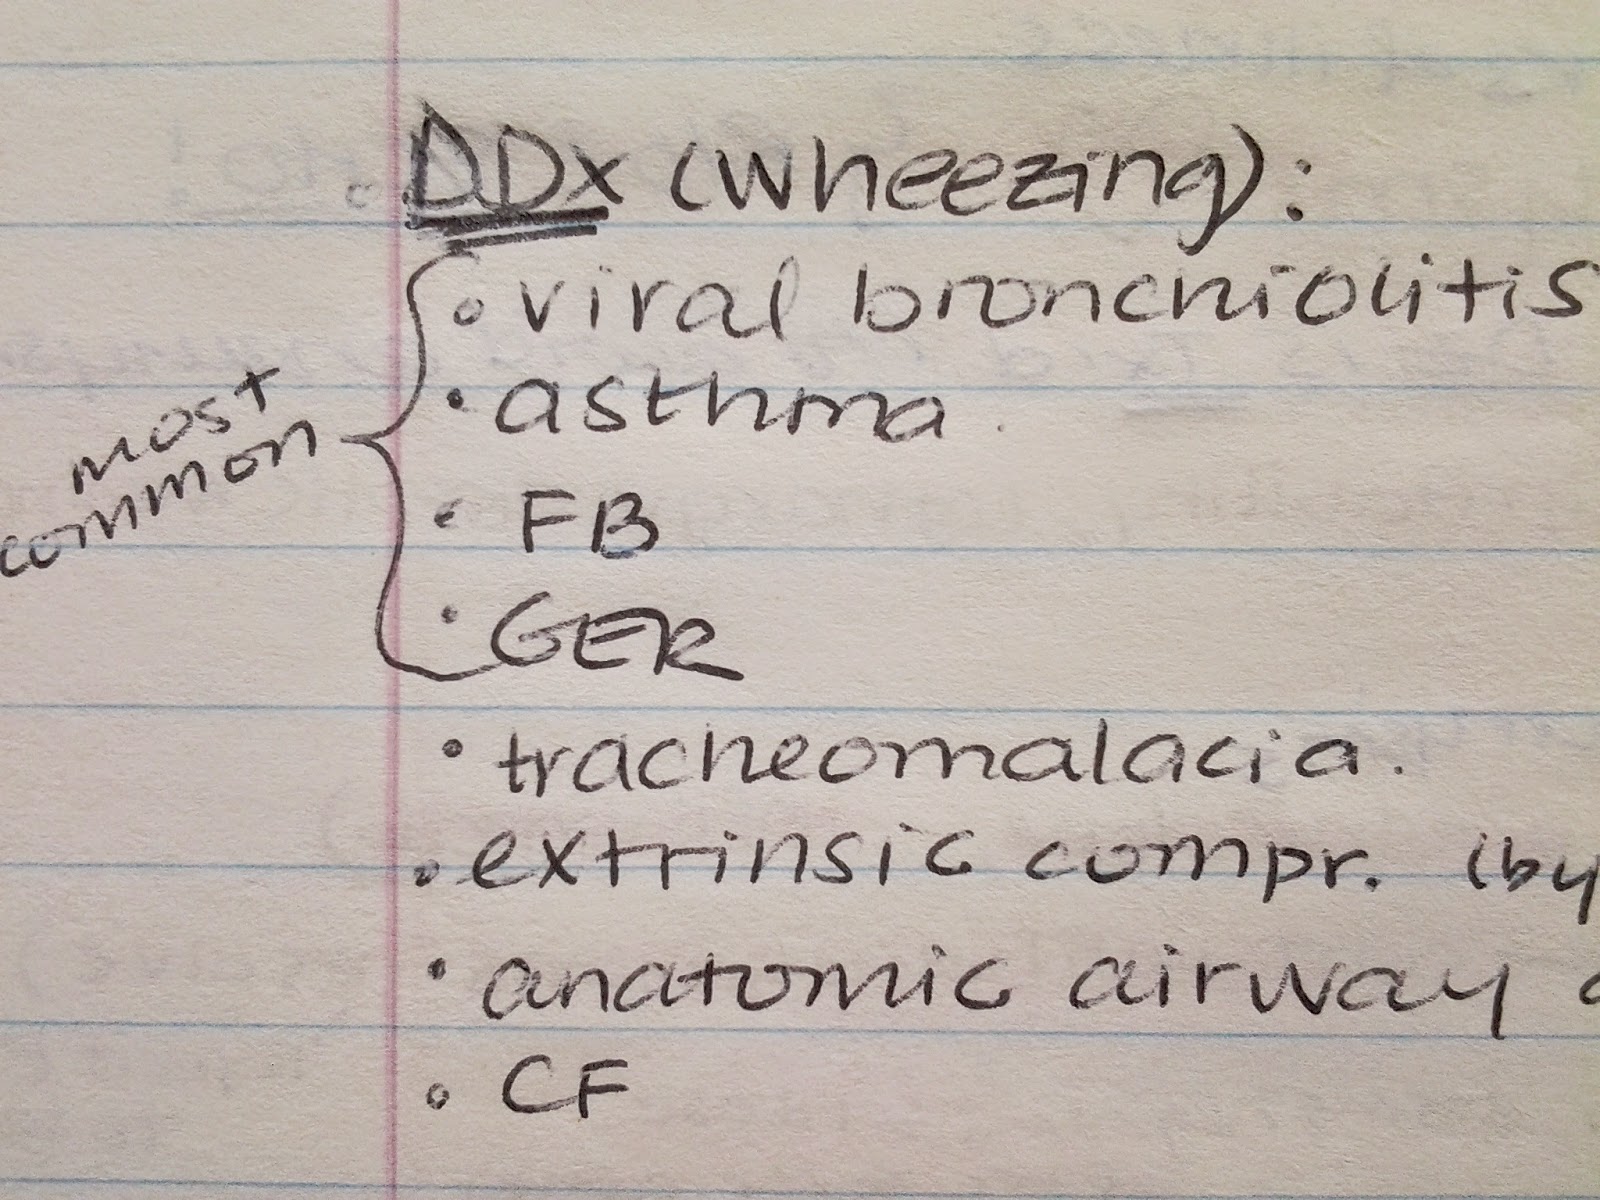 DDx (wheezing):
• viral bronchiolitis
• asthma.
• FB
• GER
most
common
• tracheomalacia.
• extrinsic compr. (by
• anatomic airway
• CF